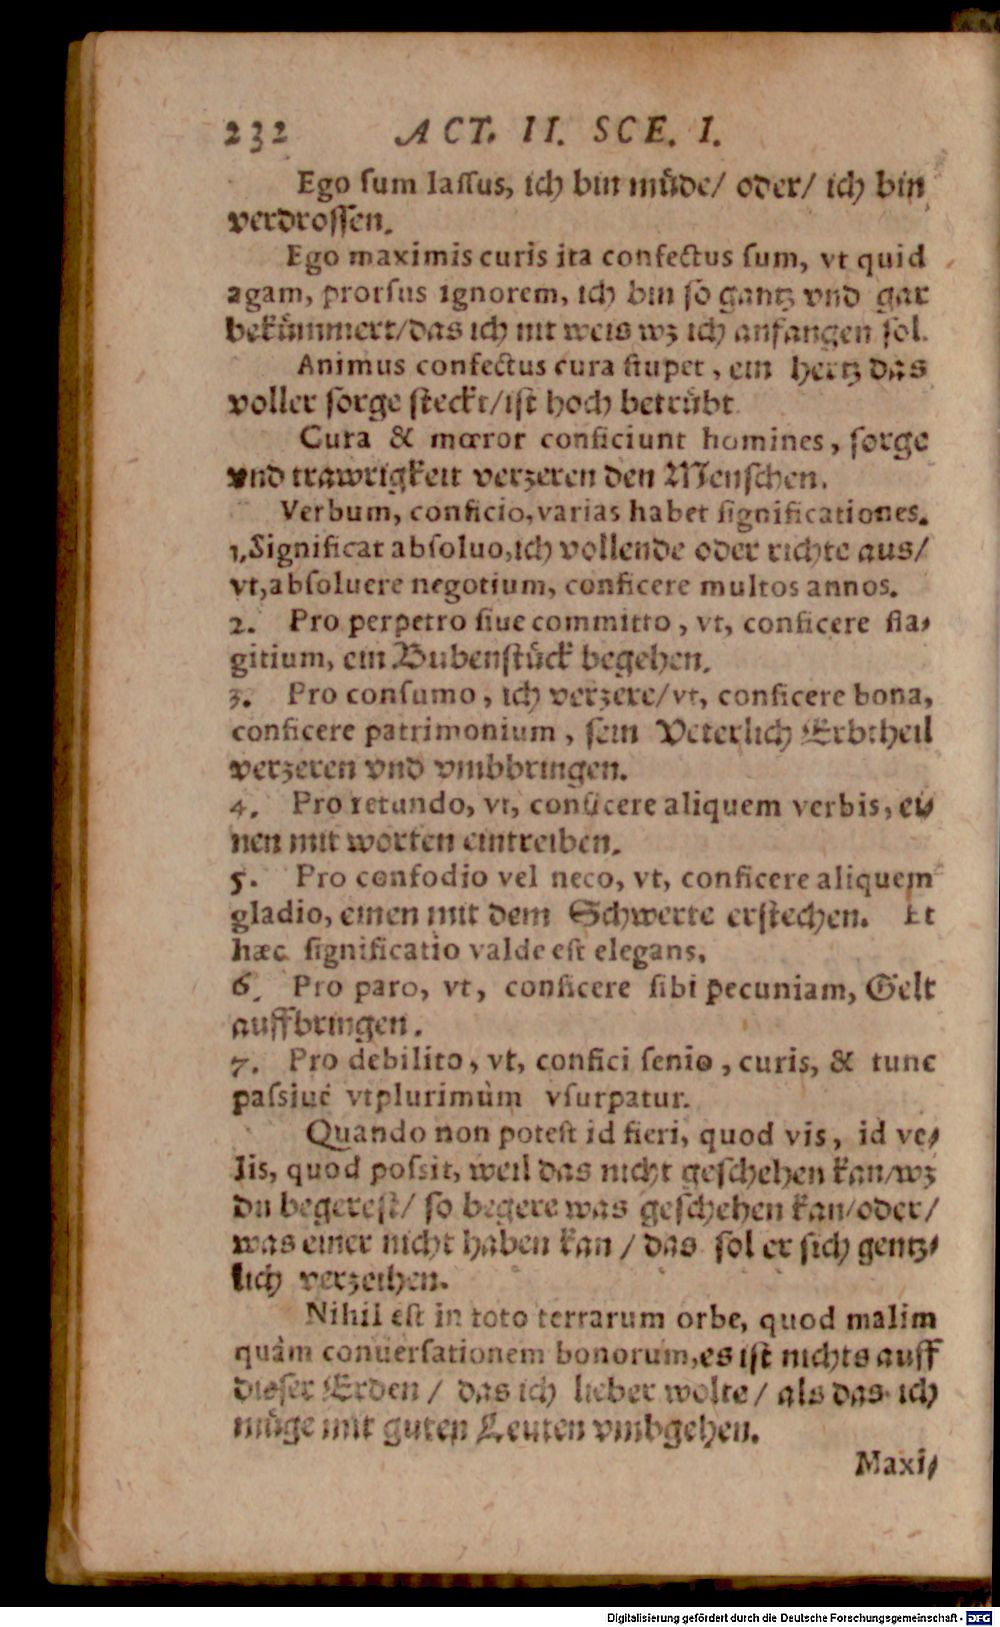 232 ACT. II. SCE. I.
Ego ſum laſſus, ich bin müde/ oder/ ich bin
verdroſſen.
Ego maximis curis ita confectus ſum, vt quid
agam, prorſus ignorem, ich bin ſo gantz vnd gar
bekümmert/das ich nit weis wz ich anfangen ſol.
Animus confectus cura ſtupet, ein hertz das
voller ſorge ſteckt/iſt hoch betrübt
Cura & mœror conficiunt homines, ſorge
vnd trawrigkeit verzeren den Menſchen.
Verbum, conficio, varias habet ſignificationes.
1. Significat abſoluo, ich vollende oder richte aus/
vt, abſoluere negotium, conficere multos annos.
2. Pro perpetro ſiue committo, vt, conficere fla-
gitium, ein Bubenſtück begehen.
3. Pro conſumo, ich verzere/vt, conficere bona,
conficere patrimonium, ſein Veterlich Erbtheil
verzeren vnd vmbbringen.
4. Pro retundo, vt, conficere aliquem verbis, ei-
nen mit worten eintreiben.
5. Pro confodio vel neco, vt, conficere aliquem
gladio, einen mit dem Schwerte erſtechen. Et
hæc ſignificatio valde eſt elegans.
6. Pro paro, vt, conficere ſibi pecuniam, Gelt
auffbringen.
7. Pro debilito, vt, confici ſenio, curis, & tunc
paſsiuè vtplurimùm vſurpatur.
Quando non poteſt id fieri, quod vis, id ve-
lis, quod poſsit, weil das nicht geſchehen kan/wz
du begereſt/ ſo begere was geſchehen kan/oder/
was einer nicht haben kan / das ſol er ſich gentz-
lich verzeihen.
Nihil eſt in toto terrarum orbe, quod malim
quàm conuerſationem bonorum, es iſt nichts auff
dieſer Erden / das ich lieber wolte/ als das ich
müge mit guten Leuten vmbgehen.
Maxi-
Digitalisierung gefördert durch die Deutsche Forschungsgemeinschaft - DFG